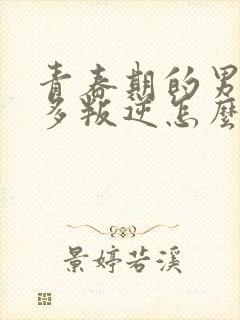 青春期的男
多叛逆怎麼
景婷若溪